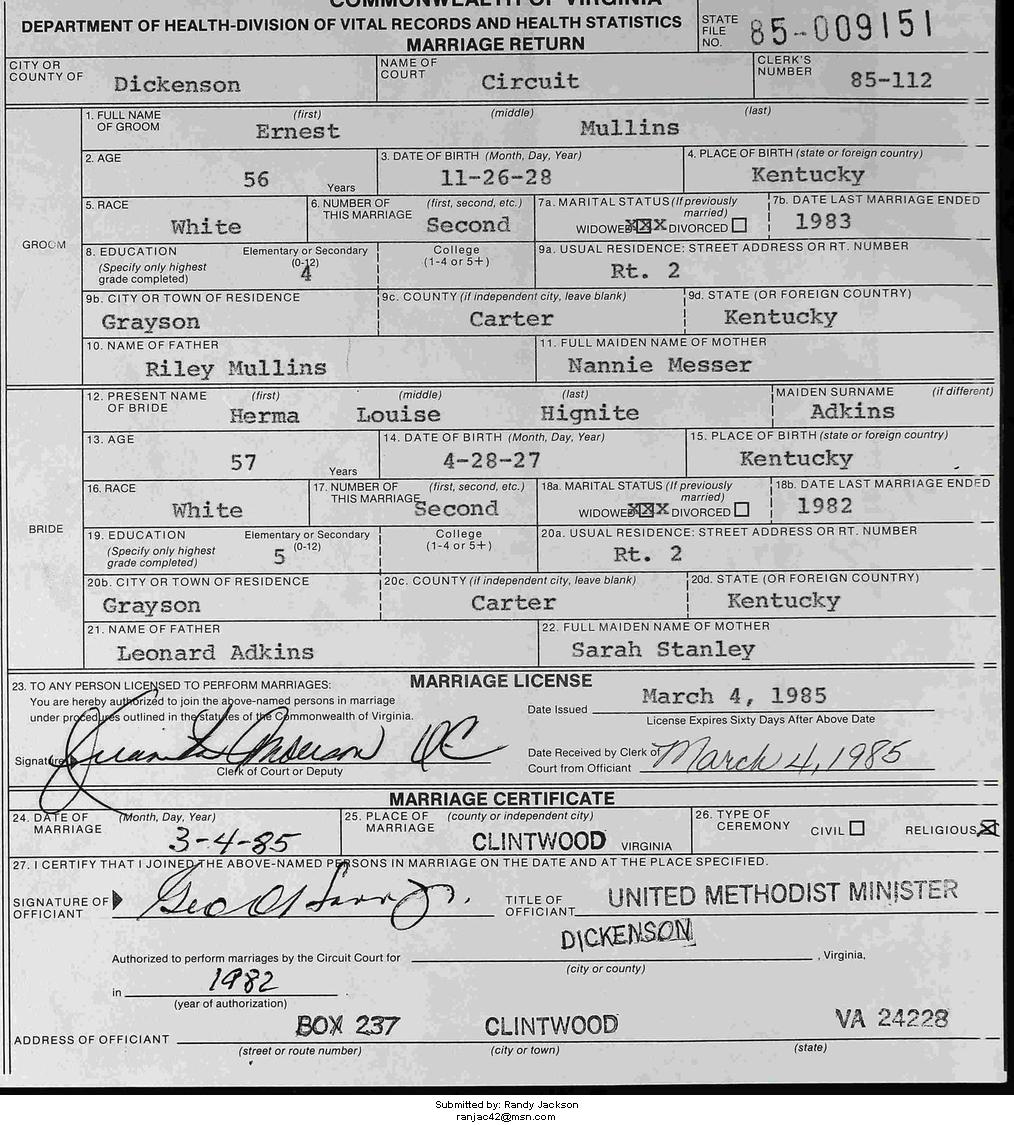 COMMONWEALTH OF VIRGINIA
DEPARTMENT OF HEALTH-DIVISION OF VITAL RECORDS AND HEALTH STATISTICS
MARRIAGE RETURN
STATE FILE NO. 85-009151
CITY OR COUNTY OF Dickenson NAME OF COURT Circuit CLERK'S NUMBER 85-112
GROOM
1. FULL NAME OF GROOM (first) Ernest (middle) (last) Mullins
2. AGE 56 Years 3. DATE OF BIRTH (Month, Day, Year) 11-26-28 4. PLACE OF BIRTH (state or foreign country) Kentucky
5. RACE White 6. NUMBER OF THIS MARRIAGE (first, second, etc.) Second 7a. MARITAL STATUS (If previously married) WIDOWED XXX DIVORCED 7b. DATE LAST MARRIAGE ENDED 1983
8. EDUCATION (Specify only highest grade completed) Elementary or Secondary (0-12) 4 College (1-4 or 5+) 9a. USUAL RESIDENCE: STREET ADDRESS OR RT. NUMBER Rt. 2
9b. CITY OR TOWN OF RESIDENCE Grayson 9c. COUNTY (if independent city, leave blank) Carter 9d. STATE (OR FOREIGN COUNTRY) Kentucky
10. NAME OF FATHER Riley Mullins 11. FULL MAIDEN NAME OF MOTHER Nannie Messer
BRIDE
12. PRESENT NAME OF BRIDE (first) Herma (middle) Louise (last) Hignite MAIDEN SURNAME (if different) Adkins
13. AGE 57 Years 14. DATE OF BIRTH (Month, Day, Year) 4-28-27 15. PLACE OF BIRTH (state or foreign country) Kentucky
16. RACE White 17. NUMBER OF THIS MARRIAGE (first, second, etc.) Second 18a. MARITAL STATUS (If previously married) WIDOWED XXX DIVORCED 18b. DATE LAST MARRIAGE ENDED 1982
19. EDUCATION (Specify only highest grade completed) Elementary or Secondary (0-12) 5 College (1-4 or 5+) 20a. USUAL RESIDENCE: STREET ADDRESS OR RT. NUMBER Rt. 2
20b. CITY OR TOWN OF RESIDENCE Grayson 20c. COUNTY (if independent city, leave blank) Carter 20d. STATE (OR FOREIGN COUNTRY) Kentucky
21. NAME OF FATHER Leonard Adkins 22. FULL MAIDEN NAME OF MOTHER Sarah Stanley
MARRIAGE LICENSE
23. TO ANY PERSON LICENSED TO PERFORM MARRIAGES:
You are hereby authorized to join the above-named persons in marriage
under procedures outlined in the statutes of the Commonwealth of Virginia.
Date Issued March 4, 1985
License Expires Sixty Days After Above Date
Signature Anderson DC
Clerk of Court or Deputy
Date Received by Clerk of Court from Official March 4, 1985
MARRIAGE CERTIFICATE
24. DATE OF MARRIAGE (Month, Day, Year) 3-4-85 25. PLACE OF MARRIAGE (county or independent city) CLINTWOOD VIRGINIA 26. TYPE OF CEREMONY CIVIL RELIGIOUS X
27. I CERTIFY THAT I JOINED THE ABOVE-NAMED PERSONS IN MARRIAGE ON THE DATE AND AT THE PLACE SPECIFIED.
SIGNATURE OF OFFICIANT Geo Jr. TITLE OF OFFICIANT UNITED METHODIST MINISTER
Authorized to perform marriages by the Circuit Court for DICKENSON , Virginia,
(city or county)
in 1982 .
(year of authorization)
ADDRESS OF OFFICIANT BOX 237 CLINTWOOD VA 24228
(street or route number) (city or town) (state)
Submitted by: Randy Jackson
ranjac42@msn.com